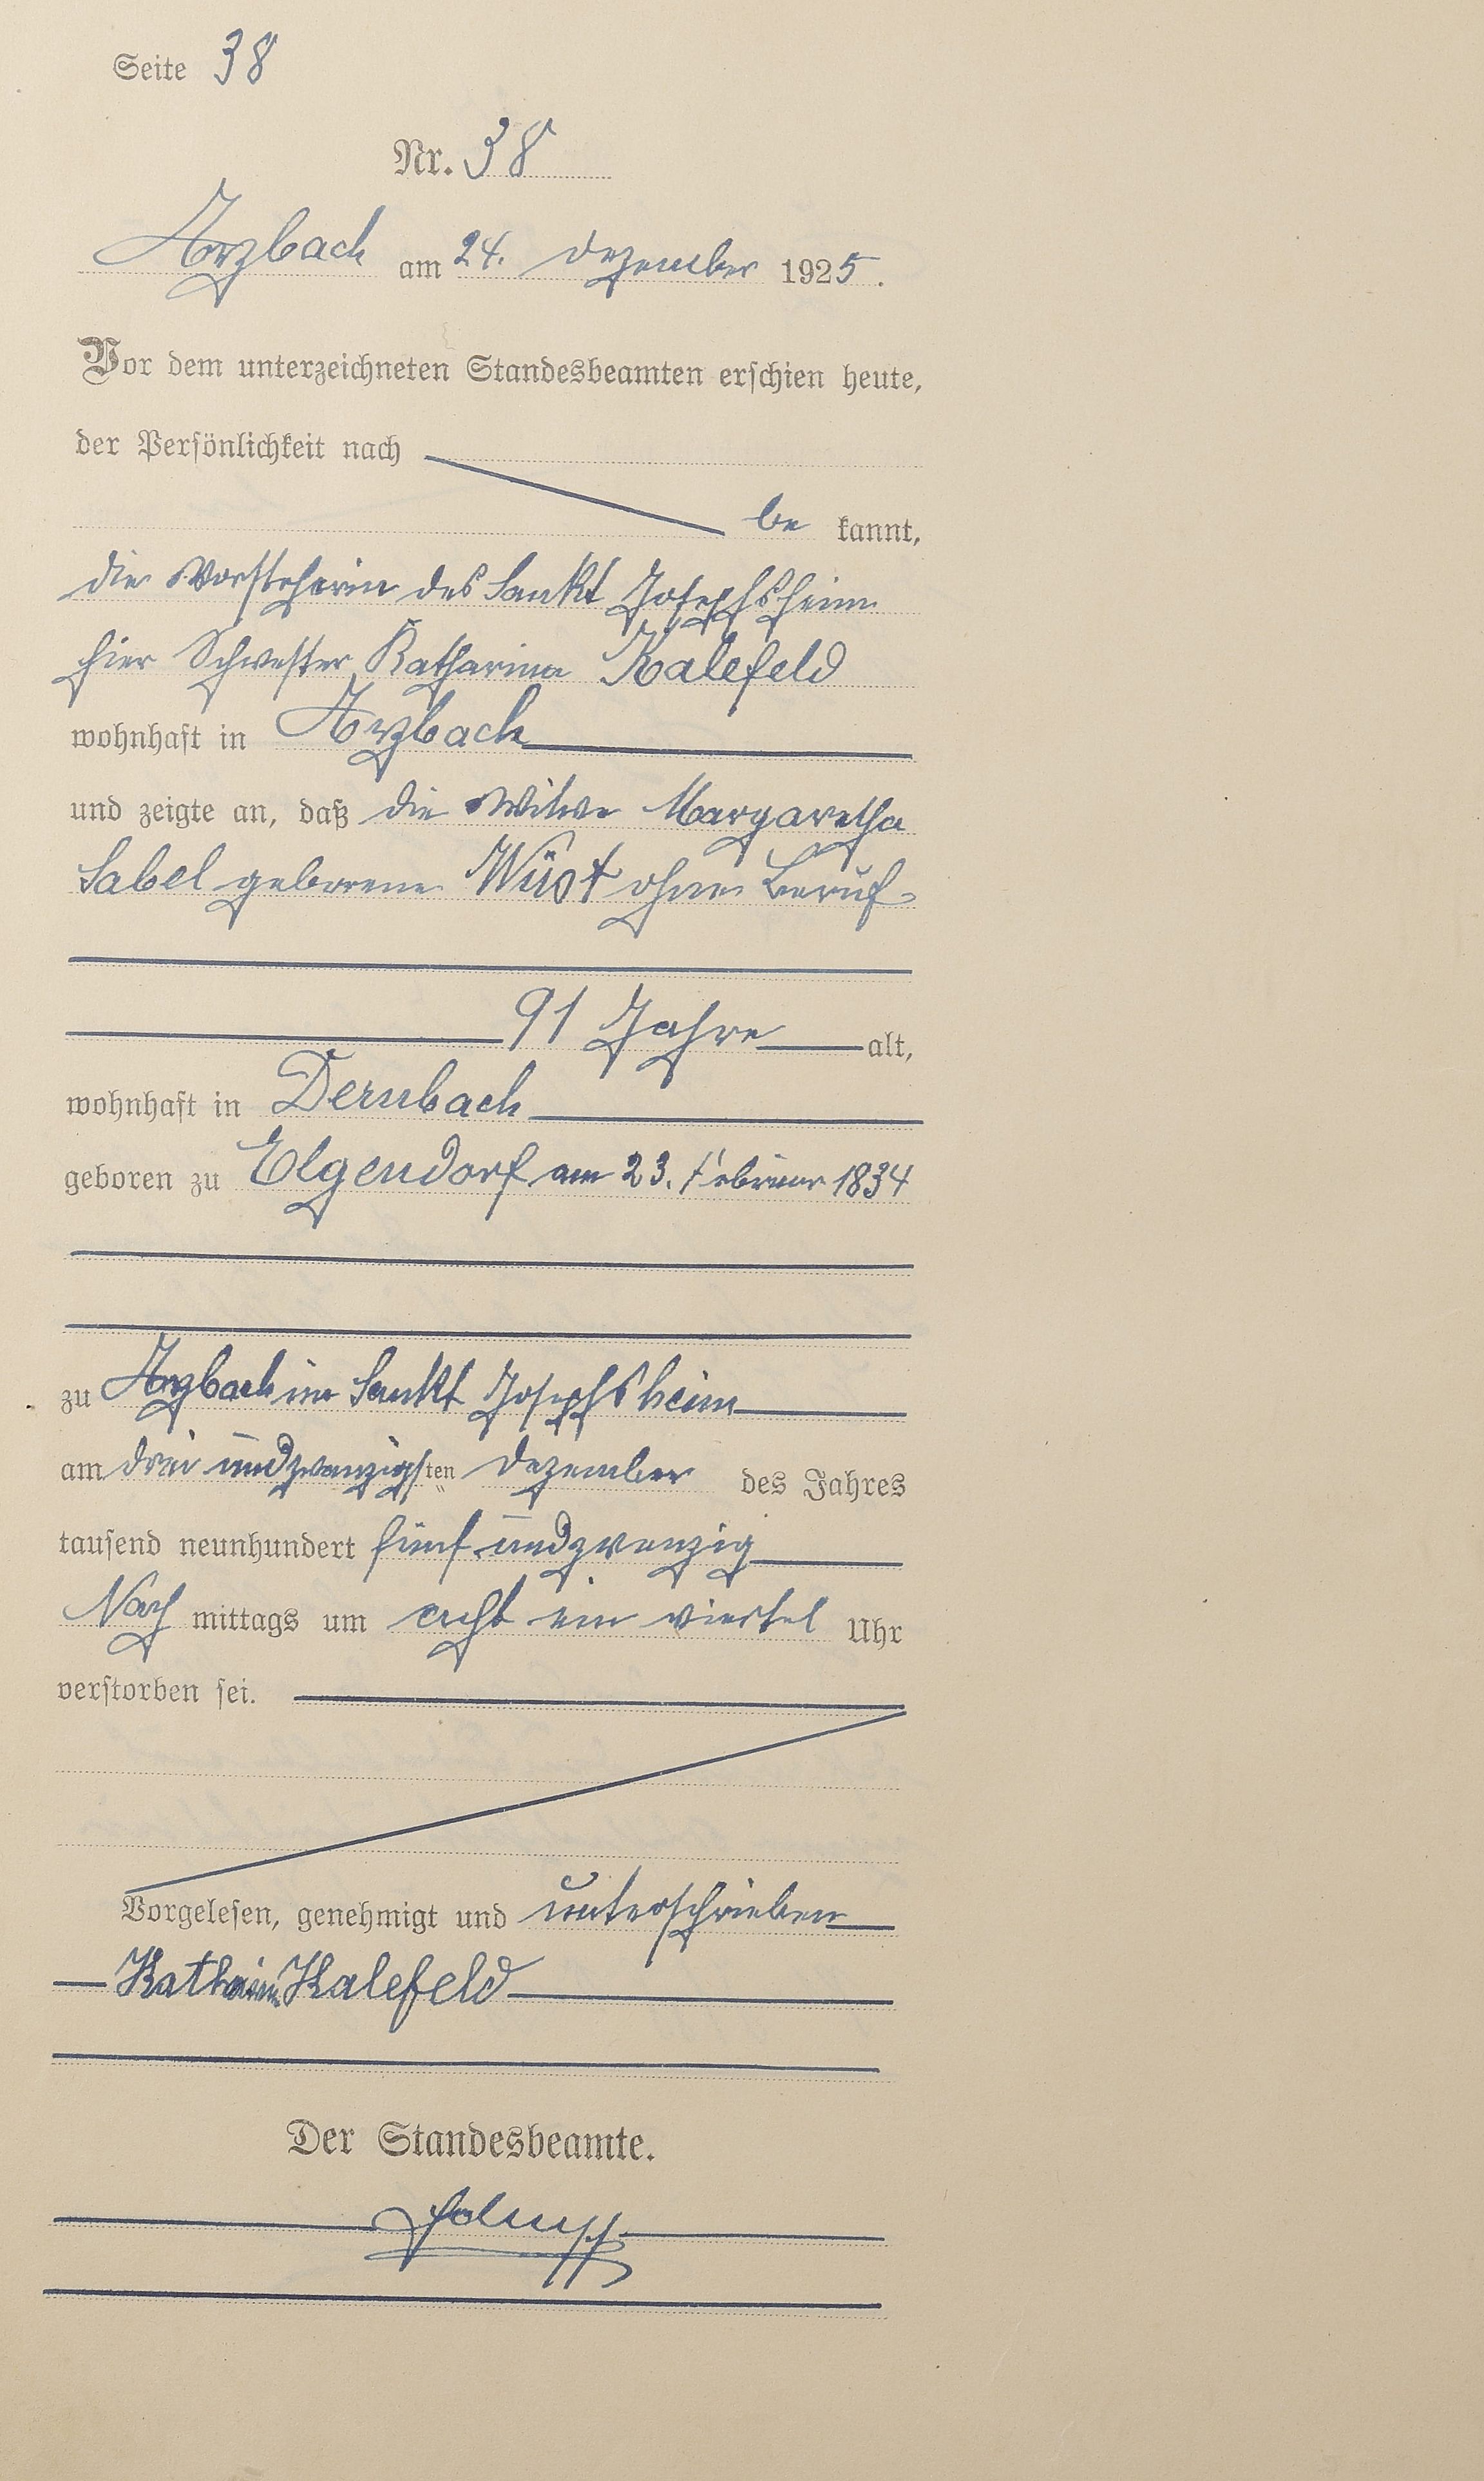 Seite 38
Nr. 38
Arzbach am 24. Dezember 1925.
Vor dem unterzeichneten Standesbeamten erschien heute,
der Persönlichkeit nach
be kannt,
die Vorsteherin des Sankt Josephsheim
hier Schwester Katharina Kalefeld
wohnhaft in Arzbach
und zeigte an, daß die Witwe Margaretha
Sabel geborene Wüst ohne Beruf
91 Jahre alt,
wohnhaft in Dernbach
geboren zu Elgendorf am 23. Februar 1834
zu Arzbach im Sankt Josephsheim
am drei und zwanzigsten Dezember des Jahres
tausend neunhundert fünf und zwanzig
Nach mittags um acht ein viertel Uhr
verstorben sei.
Vorgelesen, genehmigt und unterschrieben
Katharina Kalefeld
Der Standesbeamte.